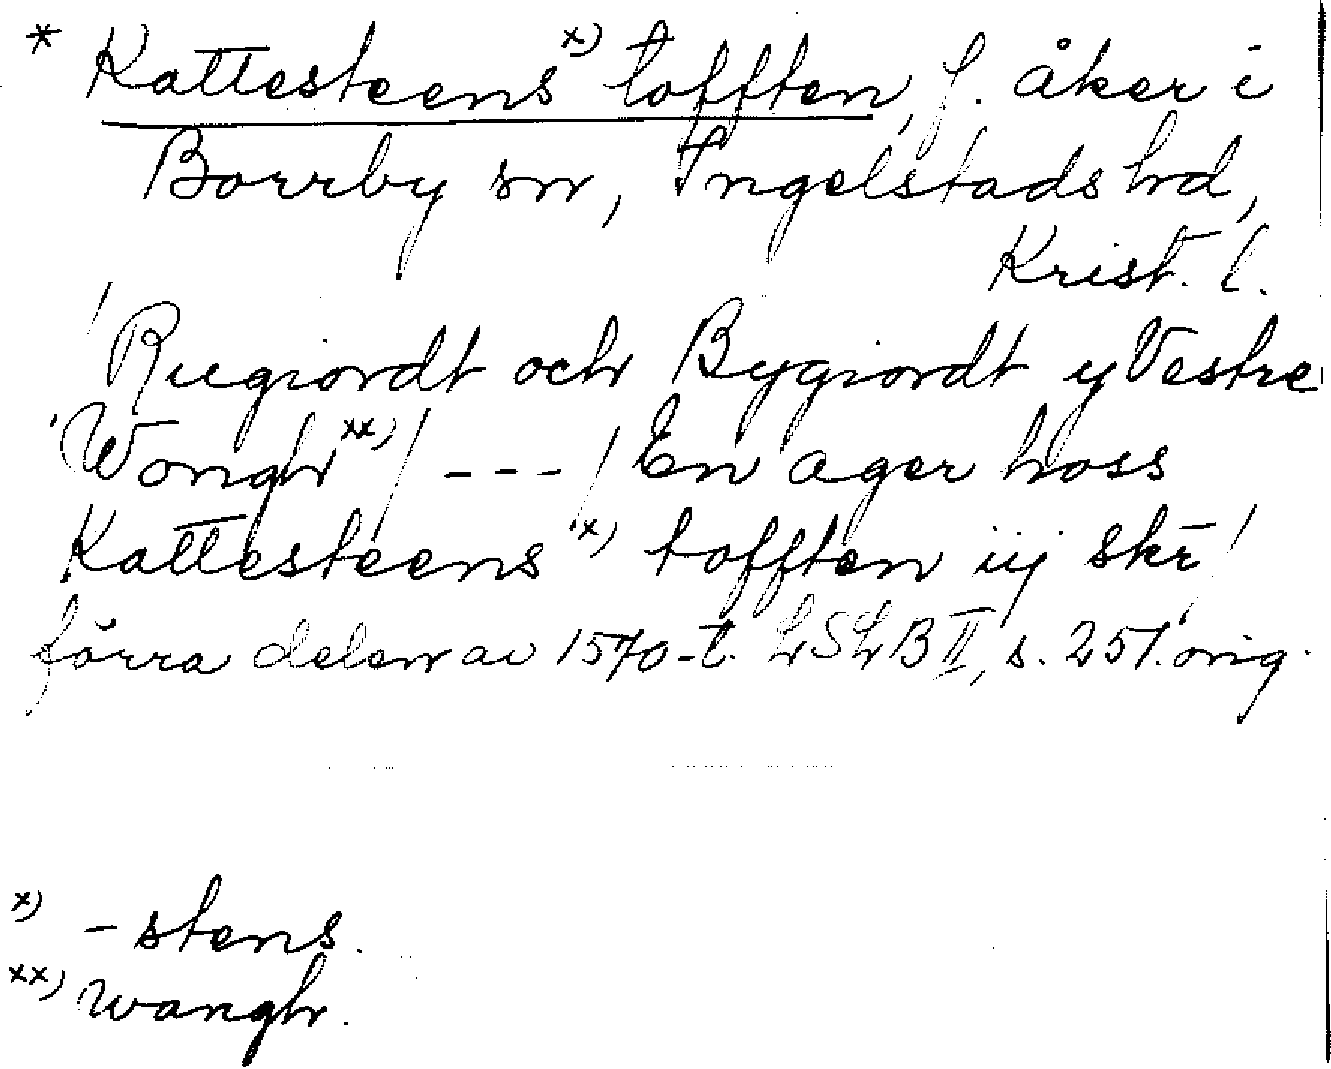 * Kattesteens x) tofften, f. åker i
Borrby sn, Ingelstads hd,
Krist. l.
/Rugiordt och Bygiordt y Vestre
Wongh xx) / - - - / En ager hoss
Kattesteens x) tofften iij skr̄/
förra delen av 1570-t. LSLB II, s. 251. orig.
x) - stens.
xx) wangh.